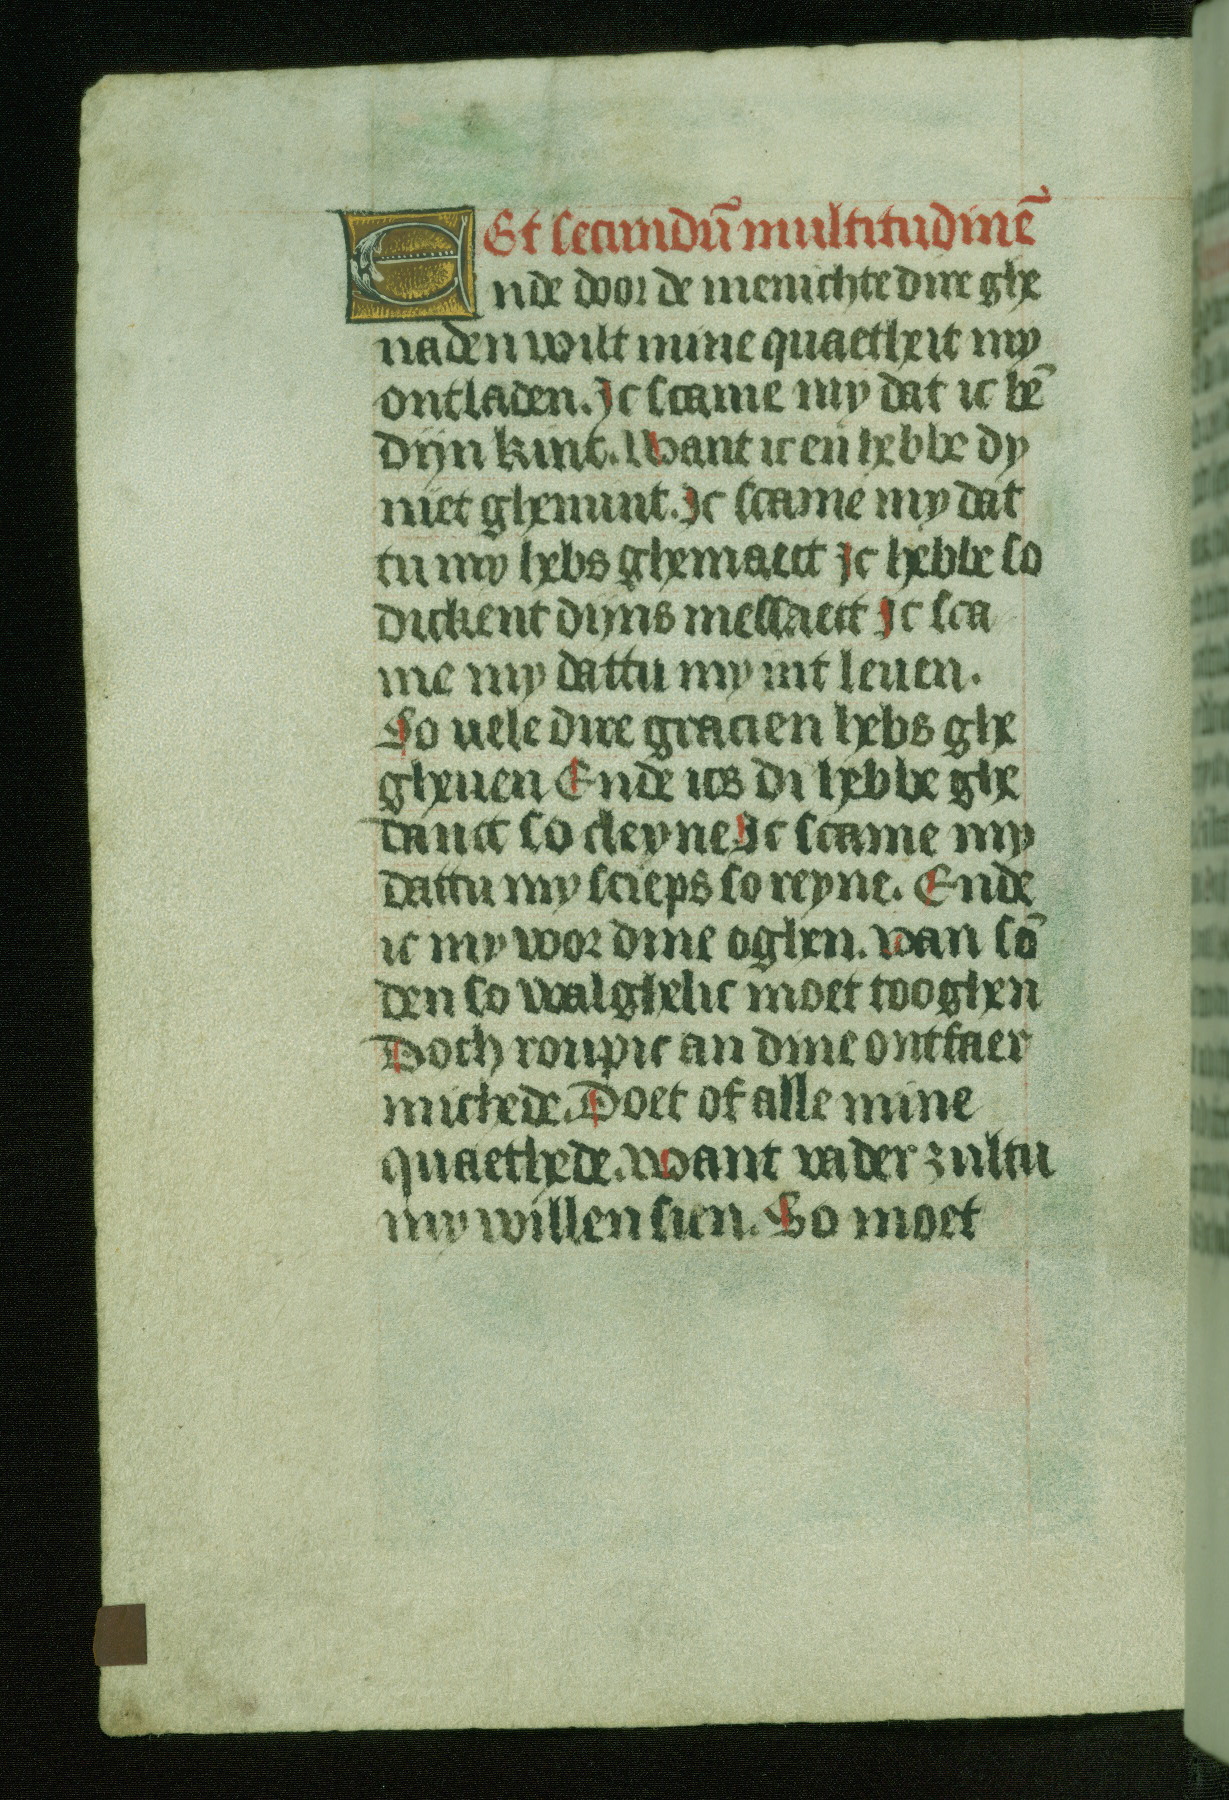 Et secundū multitudinē
Ende door de menichte dire ghe
naden wilt mine quaetheit my
ontladen. Ic scame my dat ic bē
dijn kint. Want ic en hebbe dy
niet ghemint. Ic scame my dat
tu my hebs ghemaect Ic hebbe so
dickent dijns messaect Ic sca
me my dattu my int leuen.
So uele dire gracien hebs ghe
gheuen Ende ics di hebbe ghe
danct so cleyne Ic scame my
dattu my scieps so reyne. Ende
ic my vvor dine oghen. van sō
den so walghelic moet tooghen
Doch roupic an dine ontfaer
michede. Doet of alle mine
quaethede. Want vader zultu
my willen sien. So moet